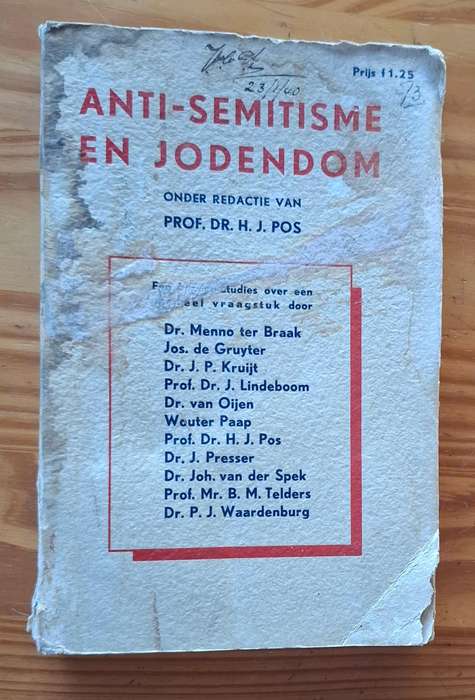 Prijs f 1.25
23/1/40
ANTI-SEMITISME
EN JODENDOM
ONDER REDACTIE VAN
PROF. DR. H. J. POS
Een studies over een
vraagstuk door
Dr. Menno ter Braak
Jos. de Gruyter
Dr. J. P. Kruijt
Prof. Dr. J. Lindeboom
Dr. van Oijen
Wouter Paap
Prof. Dr. H. J. Pos
Dr. J. Presser
Dr. Joh. van der Spek
Prof. Mr. B. M. Telders
Dr. P. J. Waardenburg